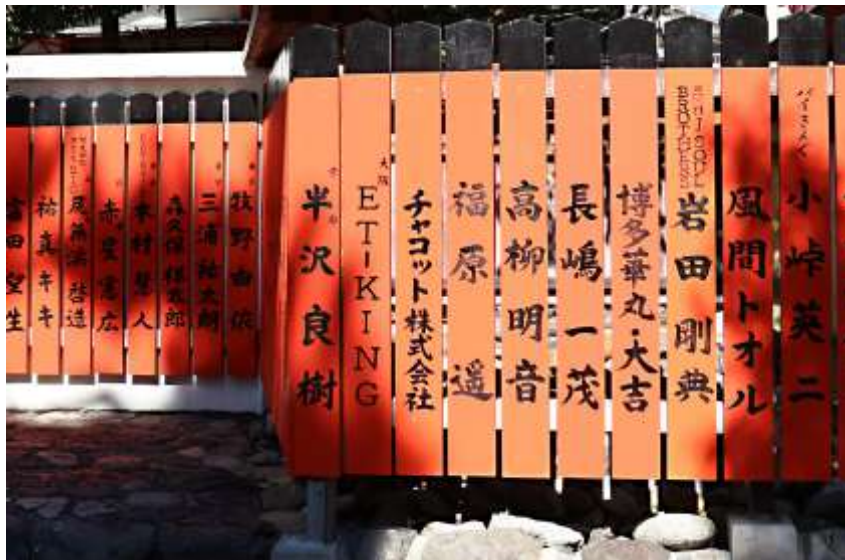 バイきんぐ
小峠英二
風間トオル
J SOUL BROTHERS
岩田剛典
博多華丸・大吉
長嶋一茂
高柳明音
福原遥
チャコット株式会社
大阪
ET-KING
半沢良樹
牧野由依
三浦祐太朗
森久保祥太郎
赤星憲広
祐真キキ